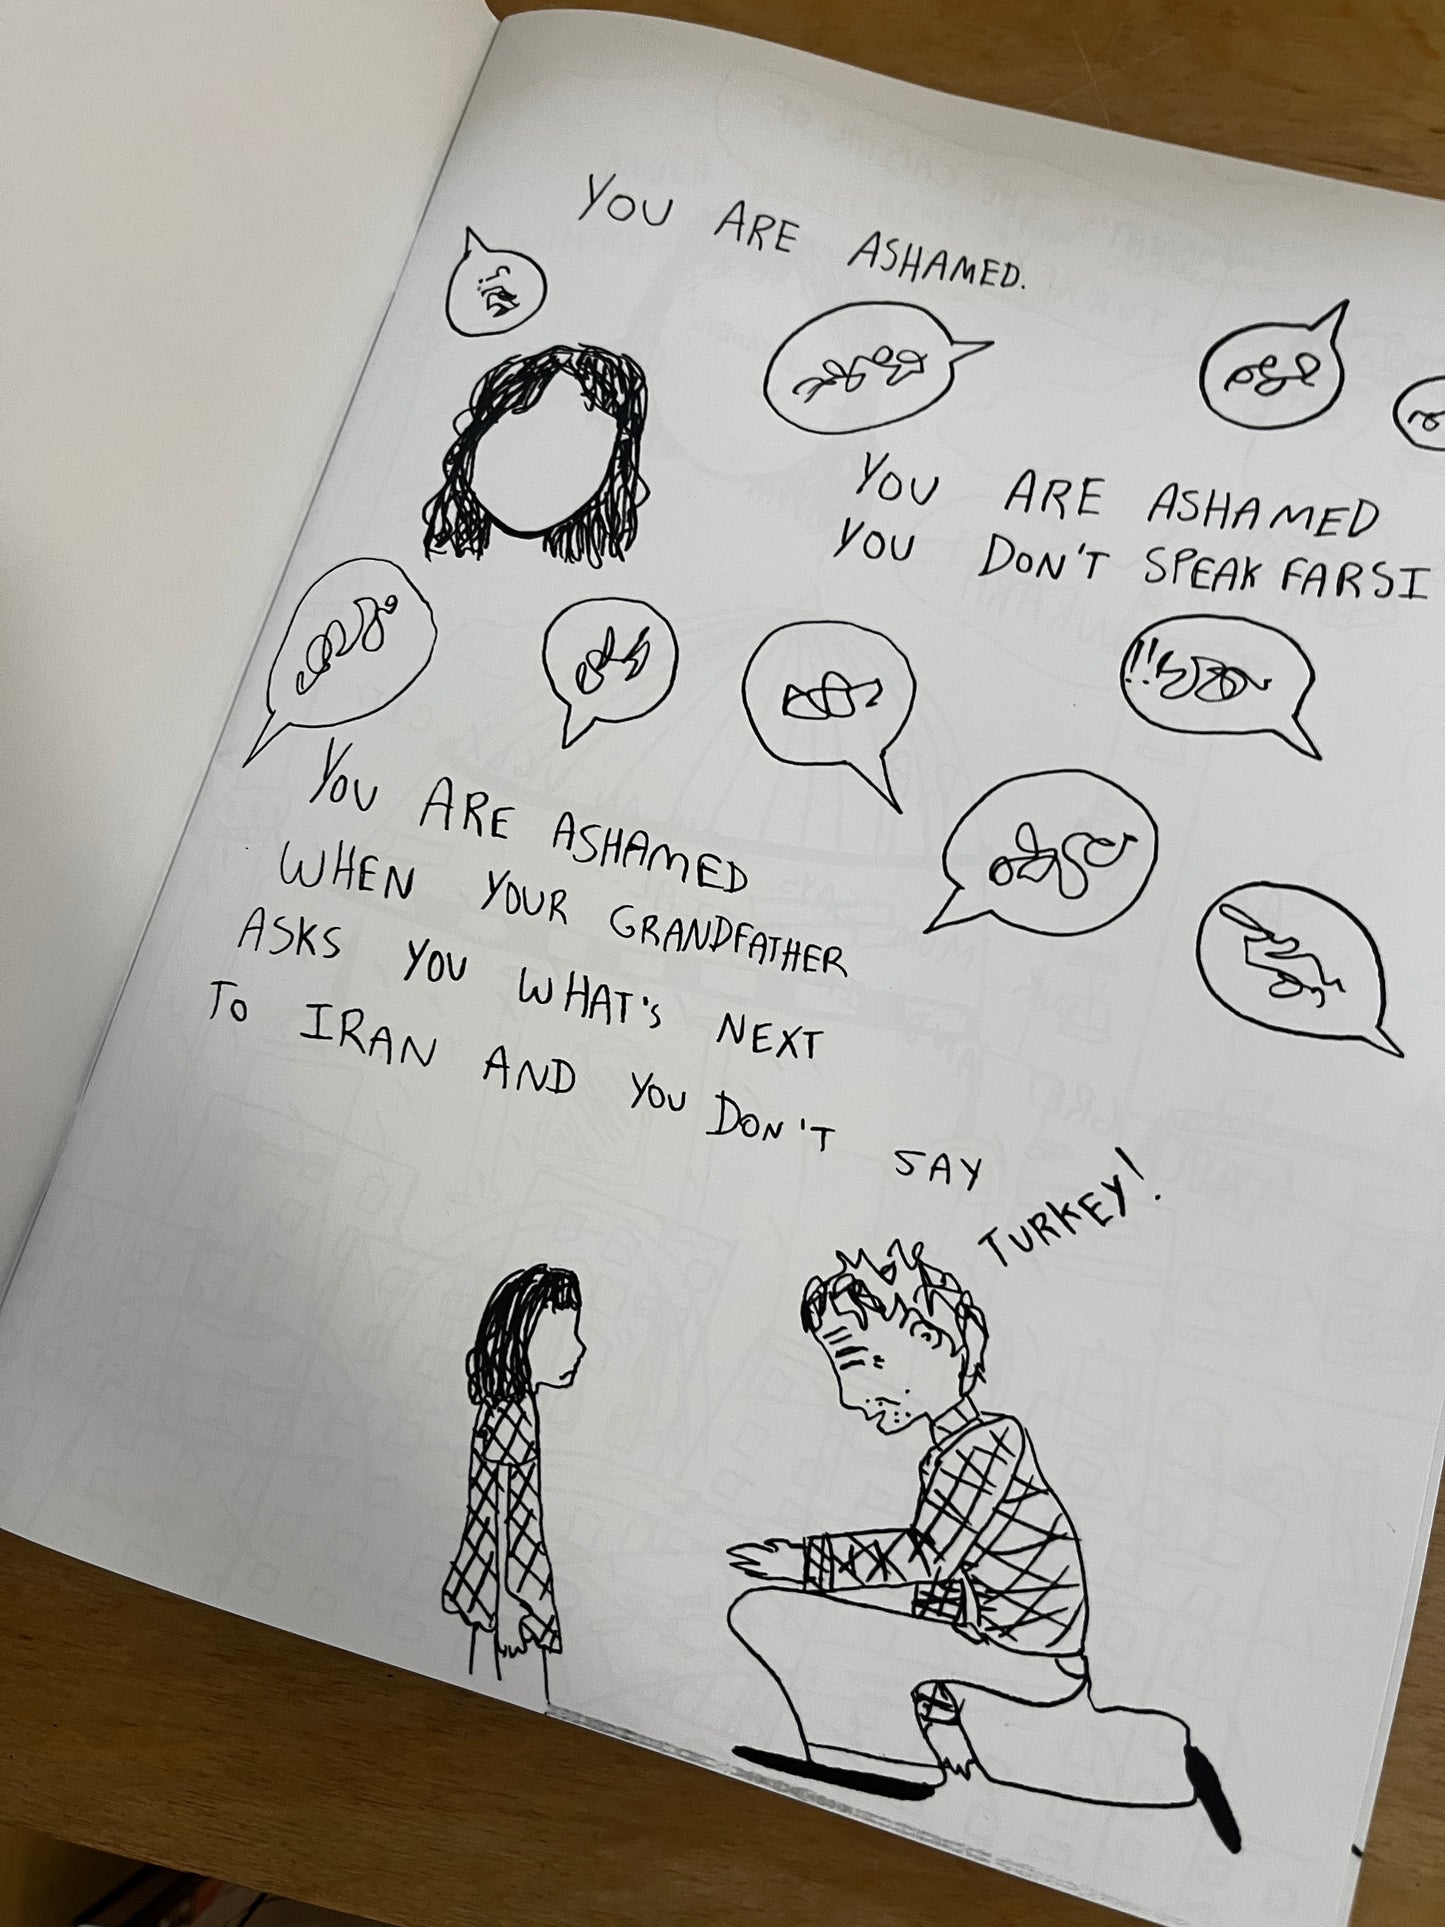 YOU ARE ASHAMED.
YOU ARE ASHAMED
YOU DON'T SPEAK FARSI
!!
YOU ARE ASHAMED
WHEN YOUR GRANDFATHER
ASKS YOU WHAT'S NEXT
TO IRAN AND YOU DON'T SAY
TURKEY!